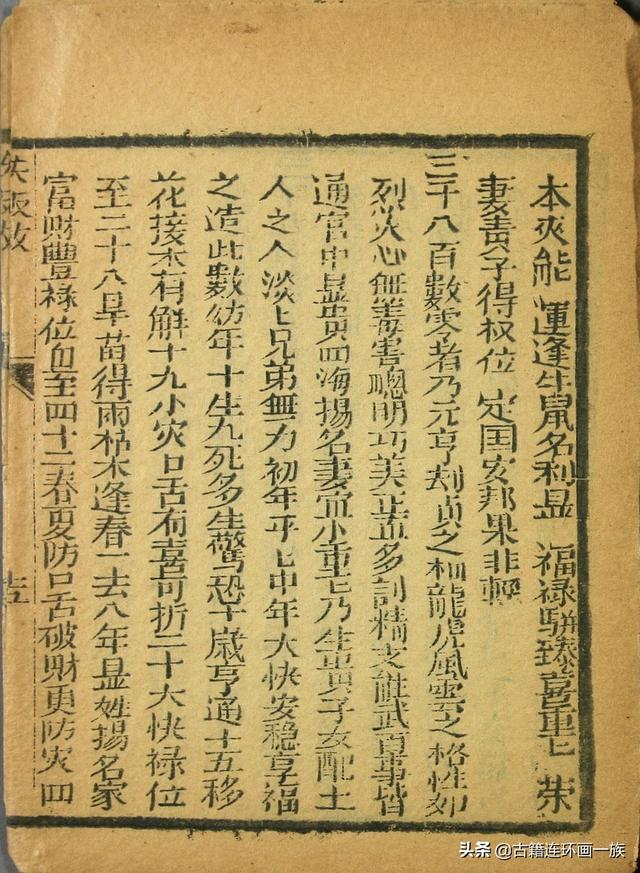 本夾能 運逢牛鼠名利显 福禄駢臻喜重匕 荣
妻貴子得权位 定国安邦果非輕
三千八百數零者乃元亨利貞之相龍虎風雲之格性如
烈火心無毒害聰明巧美正直多訓精文能武百事皆
通官中显贵四海揚名妻宜小重匕乃生貴子女配土
人之人淡匕兄弟無力初年平匕中年大快安穩享福
之造此數幼年十生九死多生驚恐千歲亨通十五移
花接木有解十九小灾口舌有喜可折二十大快禄位
至二十八旱苗得雨枯木逢春一去八年显姓揚名家
富財豐禄位至四十二春夏防口舌破財更防灾四
头条 @古籍连环画一族